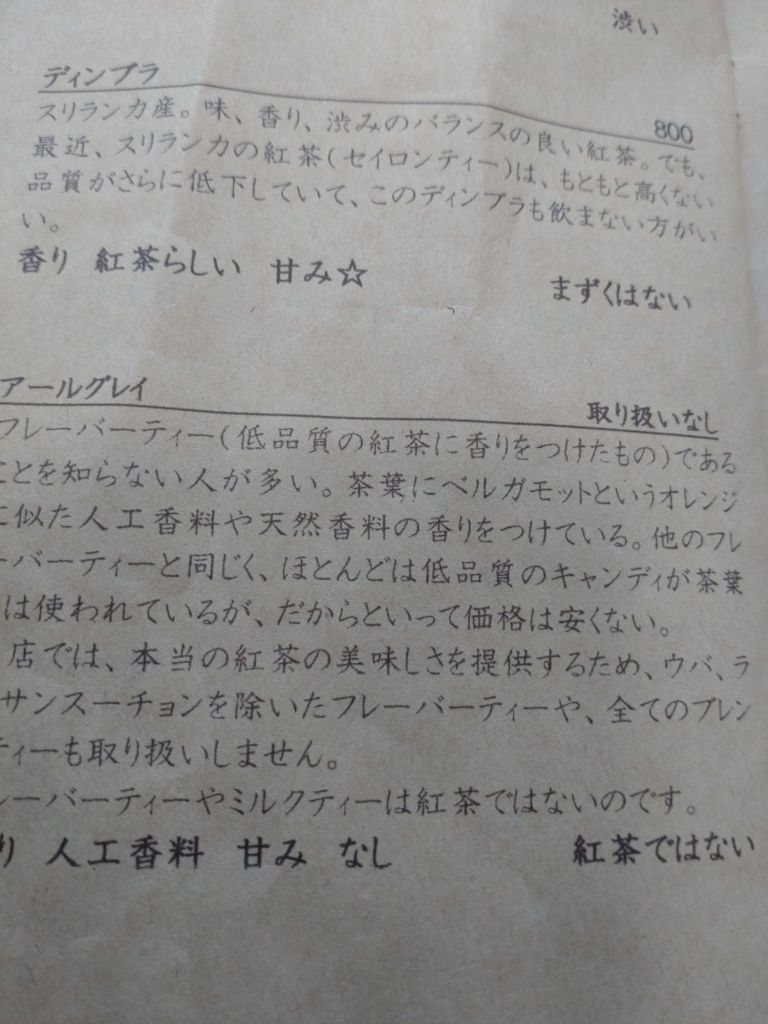 渋い
ディンブラ
800
スリランカ産。味、香り、渋みのバランスの良い紅茶。でも、
最近、スリランカの紅茶(セイロンティー)は、もともと高くない
品質がさらに低下していて、このディンブラも飲まない方がい
い。
香り 紅茶らしい 甘み☆ まずくはない
アールグレイ 取り扱いなし
フレーバーティー(低品質の紅茶に香りをつけたもの)である
ことを知らない人が多い。茶葉にベルガモットというオレンジ
に似た人工香料や天然香料の香りをつけている。他のフレ
ーバーティーと同じく、ほとんどは低品質のキャンディが茶葉
は使われているが、だからといって価格は安くない。
店では、本当の紅茶の美味しさを提供するため、ウバ、ラ
サンスーチョンを除いたフレーバーティーや、全てのブレン
ティーも取り扱いしません。
レーバーティーやミルクティーは紅茶ではないのです。
り 人工香料 甘み なし 紅茶ではない